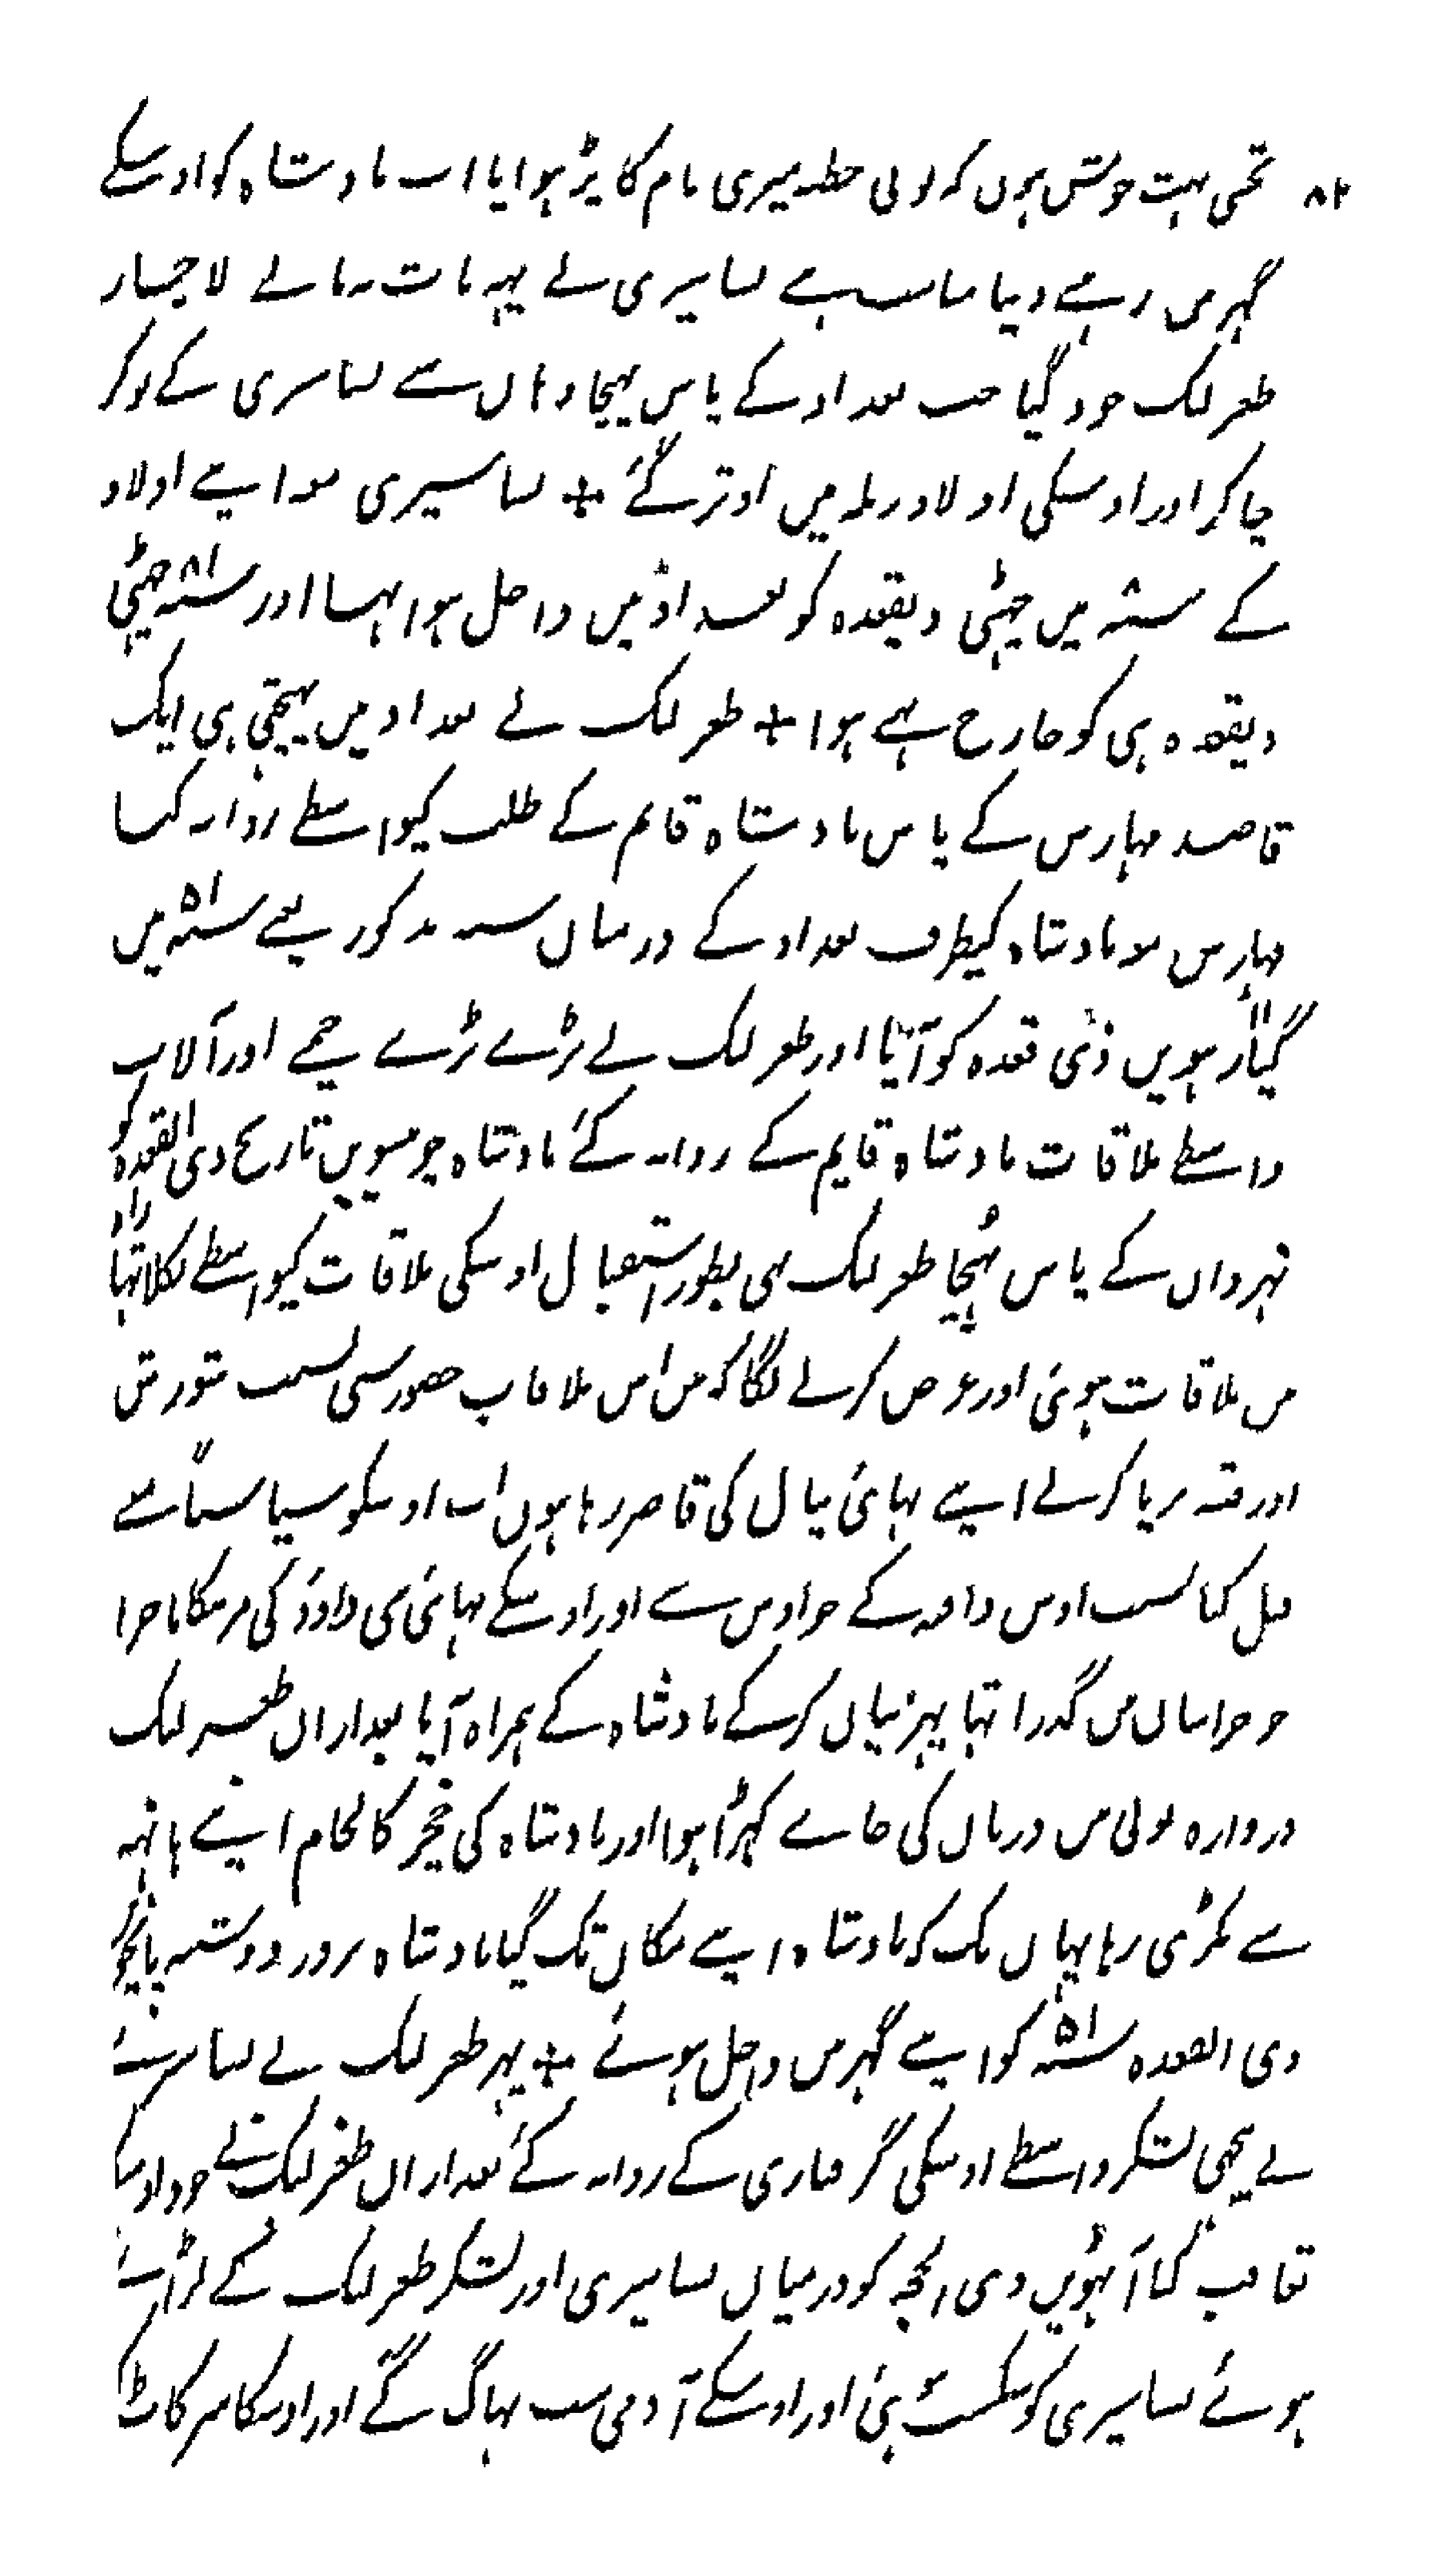 ۸۲
تجھی بہت خوش ہوں کہ تو نی خطبہ میری نام کا پڑہوایا اب بادشاہ کو اوسکے
گہر میں رہنے دینا مناسب ہے بساسیری نے یہہ بات نہ مانے لاچار
طغرلبک خود گیا جب بغداد کے پاس پہنچا وہاں سے بساسیری کے نوکر
چاکر اور اوسکی اولاد رملہ میں اوتر گئے + بساسیری معہ اپنے اولاد
کے سنہ میں چہٹی ذیقعدہ کو بغداد میں داخل ہوا تہا اور سنہ ۵۱ چہٹی
ذیقعدہ ہی کو خارج بہے ہوا + طغرلبک نے بغداد میں پہنچتی ہی ایک
قاصد مہارس کے پاس بادشاہ قایم کے طلب کیواسطے روانہ کیا
مہارس معہ بادشاہ کیطرف بغداد کے درمیان سنہ مذکور یعنے سنہ ۵۱ میں
گیارہویں ذی قعدہ کو آیا اور طغرلبک نے بڑے بڑے خیمے اور آلات
واسطے ملاقات بادشاہ قایم کے روانہ کئے بادشاہ چوبیسویں تاریخ ذی القعدہ کو
نہروان کے پاس پہنچا طغرلبک بہی بطور استقبال اوسکی ملاقات کیواسطے نکلا تہا راہ
میں ملاقات ہوئی اور عرض کرنے لگا کہ میں اس ملاقات حضور سی بسبب شورش
اور فتنہ برپا کرنے اپنے بہائی نیال کی قاصر رہا ہوں اب اوسکو سیاستاً مینے
قتل کیا بسبب اوس واقعہ کے جو اوس سے اور اوسکے بہائی بہی داود کی مرنیکا ماجرا
جو خراسان میں گذرا تہا یہہ بیان کر کے بادشاہ کے ہمراہ آیا بعد ازان طغرلبک
دروازہ نوبی میں دربان کی جاے کہڑا ہوا اور بادشاہ کی خچر کا لجام اپنے ہاتہہ
سے پکڑی رہا یہاں تک کہ بادشاہ اپنے مکان تک گیا بادشاہ بروز دوشنبہ پانچویں
ذی القعدہ سنہ ۵۱ کو اپنے گہر میں داخل ہوئے + پہر طغرلبک نے بساسیری
کے پیچہی لشکر واسطے اوسکی گرفتاری کے روانہ کئے بعد ازان طغرلبک نے خود اوسکا
تعاقب کیا آٹہویں ذی الحجہ کو درمیان بساسیری اور لشکر طغرلبک کے لڑائی
ہوئے بساسیری کو شکست ہوئی اور اوسکے آدمی سب بہاگ گئے اور اوسکا سر کاٹ